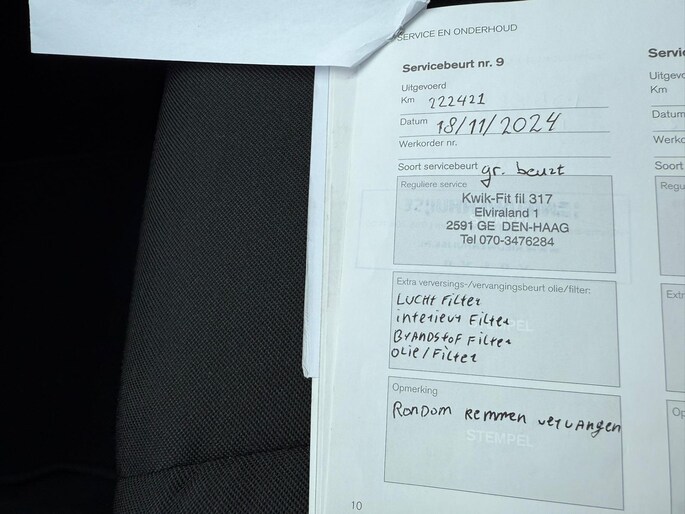 SERVICE EN ONDERHOUD
Servicebeurt nr. 9
Uitgevoerd
Km 222421
Datum 18/11/2024
Werkorder nr.
Soort servicebeurt gr. beurt
Reguliere service
Kwik-Fit fil 317
Elviraland 1
2591 GE DEN-HAAG
Tel 070-3476284
Extra verversings-/vervangingsbeurt olie/filter:
LUCHT Filter
interieur Filter
BrANDStoF Filter
OLIE/Filter
Opmerking
RonDom Remmen vervangen
STEMPEL
10
Servic
Uitgevo
Km
Datum
Werko
Soort
Regu
Extr
Op